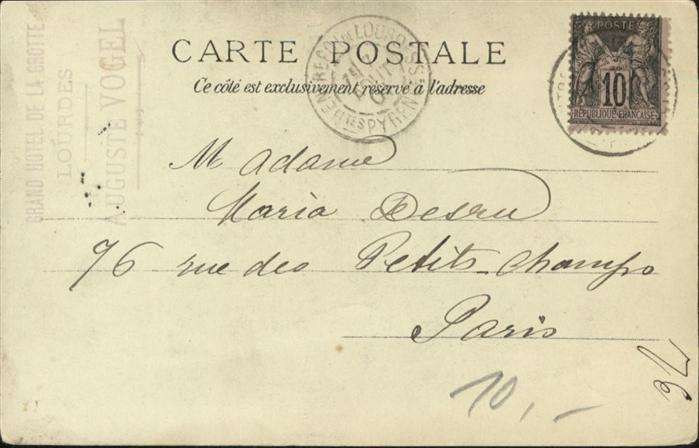 CARTE POSTALE
Ce côté est exclusivement réservé à l'adresse
POSTE
10
RÉPUBLIQUE FRANÇAISE
GRAND HOTEL DE LA GROTTE
LOURDES
AUGUSTE VOGEL
LOURDES
PYRÉNÉES
Madame
Maria Desru
76 rue des Petits-Champs
Paris
10,-